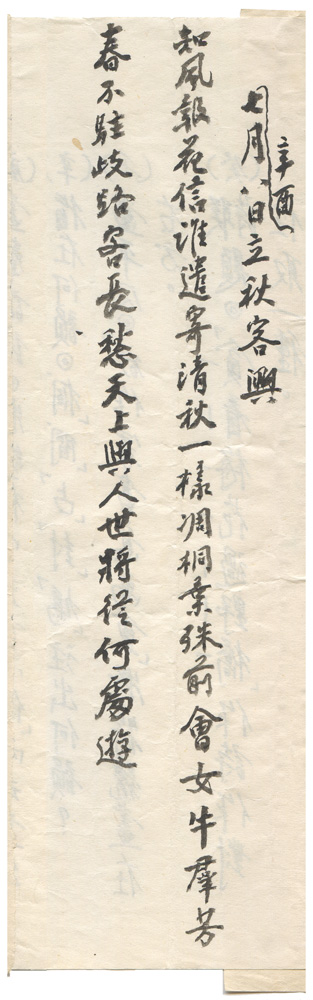 辛酉
七月八日立秋客興
知風報花信誰遣寄清秋一樣凋桐葉殊前會女牛羣芳
春不駐歧路客長愁天上與人世將從何處遊